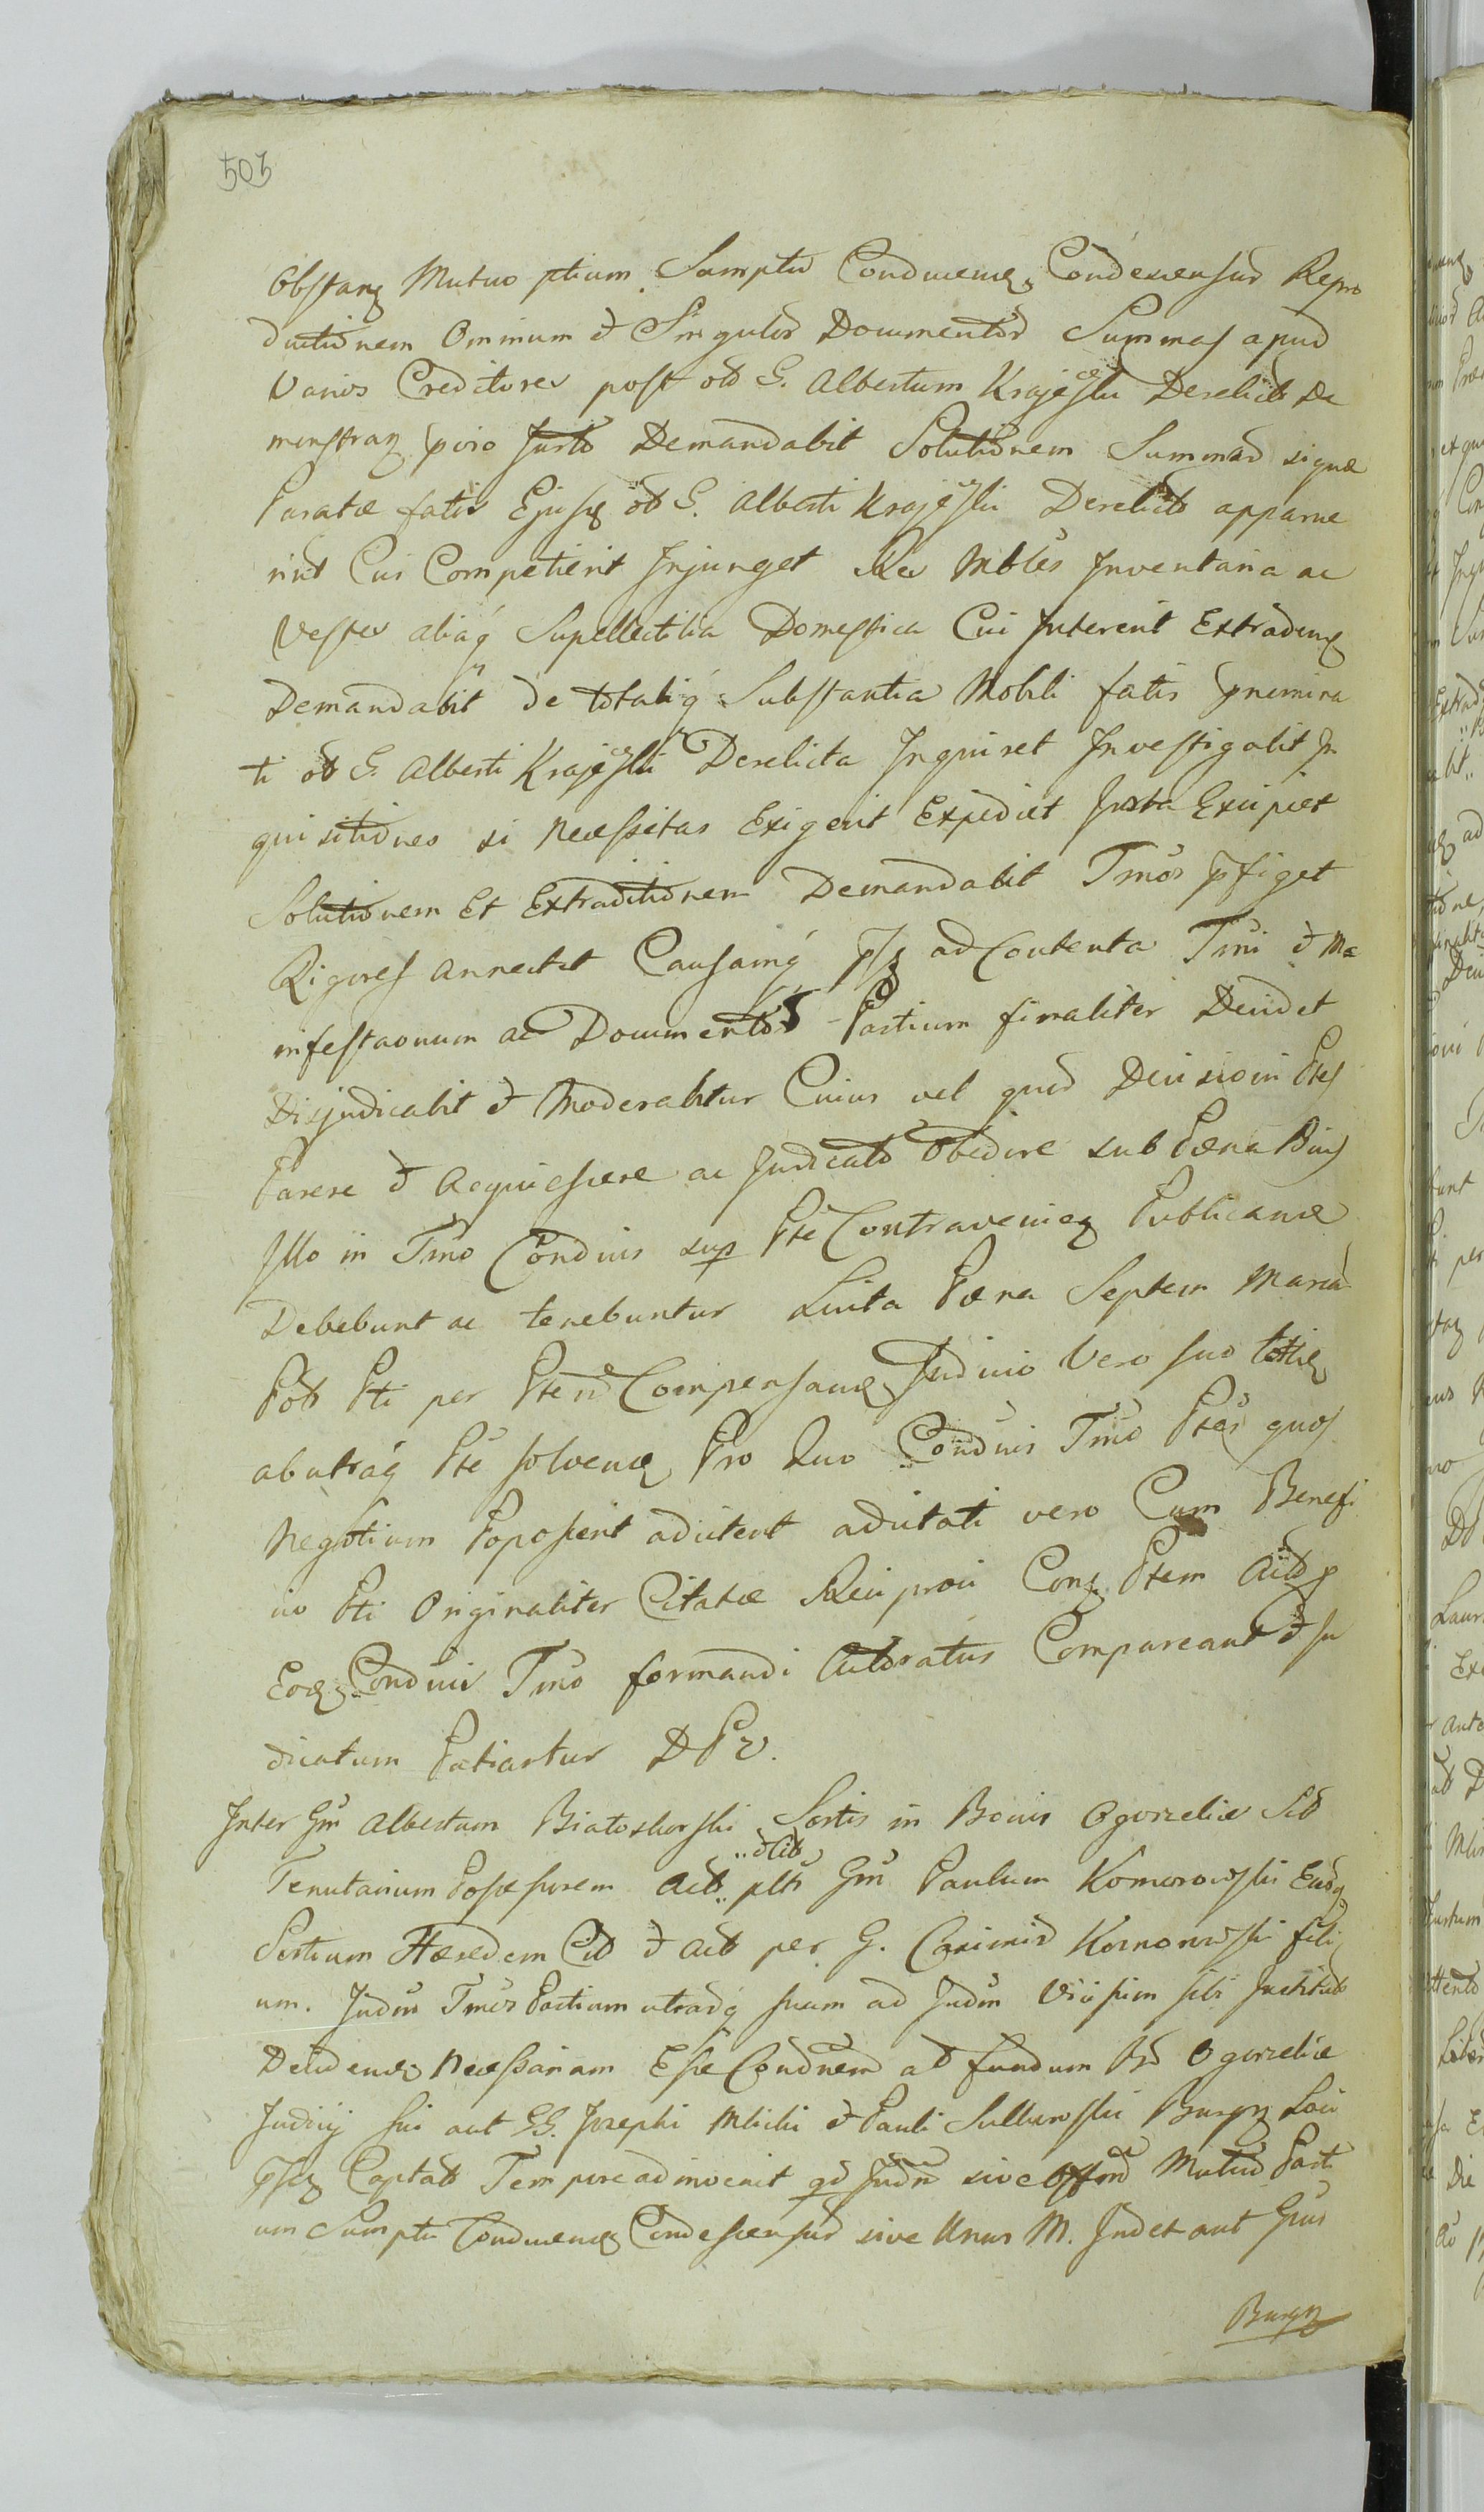 503
Obstanz Mutuo ptium Sumptu Conducenz Condescensur Repro
ductionem Omnium et Singulor Documentor Summas apud
Varios Creditores post ob G. Albertum Krajewski Derelict De
monstranz Justo Demandabit Solutionem Summar siquæ
Paratæ satis Ejusq ob G. Alberti Krajewski Derelict apparue
rint Cui Competierit Injunget Res Mbles Inventaria ac
Vestes aliaq Supellectilia Domestica Cui Intererit Extradenz
Demandabit de totaliq Substantia Mobili fatis pnemina
ti ob G. Alberti Krajewski Derelicta Inquiret Investigabit In
quisitiones si Necessitas Exigerit Expediet Juxta Excipiet
Solutionem Et Extraditionem Demandabit Tmos pfiget
Rigores annectet Causamq psz ad Contenta Tmi et Ma
nifestaonum ac Documentor Partium finaliter Decidet
Disjudicabit et Moderabitur Cuius vel quor Decisioni Ptes
Parere et Acquiescere ac Judicato Obedire sub Pœna Bin
Illo in Tmo Conduis sup Pte Contravenien Publicanda
Debebunt ac tenebuntur Luita Pœna Septem Marcar
Pob Pti per Ptem Compensanz Judicio Vero suo toties
ab utraq Pte solvenda Pro Quo Conduis Tmo Ptes quos
Negotium Poposcerit adcitent adcitati vero Cum Benefi
cio Pti Originaliter Citatæ Reciproci Conz Ptem Act p
Eosz Conduis Tmo formandi Actoratus Compareant et Ju
dicatum Patiantur DPv.
Inter Gm Albertum Białoskorski Sortis in Bonis Ogorzelice Sit
et Cit
Tenutarium Possessorem Act pltr Gm Paulum Komorowski Eardz
Sortium Hæredem Cit et Act per G. Casimir Komorowski fili
um. Judm Tmos Partium utrarq suam ad Judm Viissim sibi Institut
Decidenz Necessariam Esse Condnem ad fundum Br Ogorzelice
Judicij sui aut GG. Josephi Mlicki et Pauli Sulkowski Burgz Loci
psz Captat Tempore adinvenit qd Judm sive Offm Mutuo Parti
um Sumptu Conducenz Condescensur sive Unus M. Judex aut Gsus
Burgz